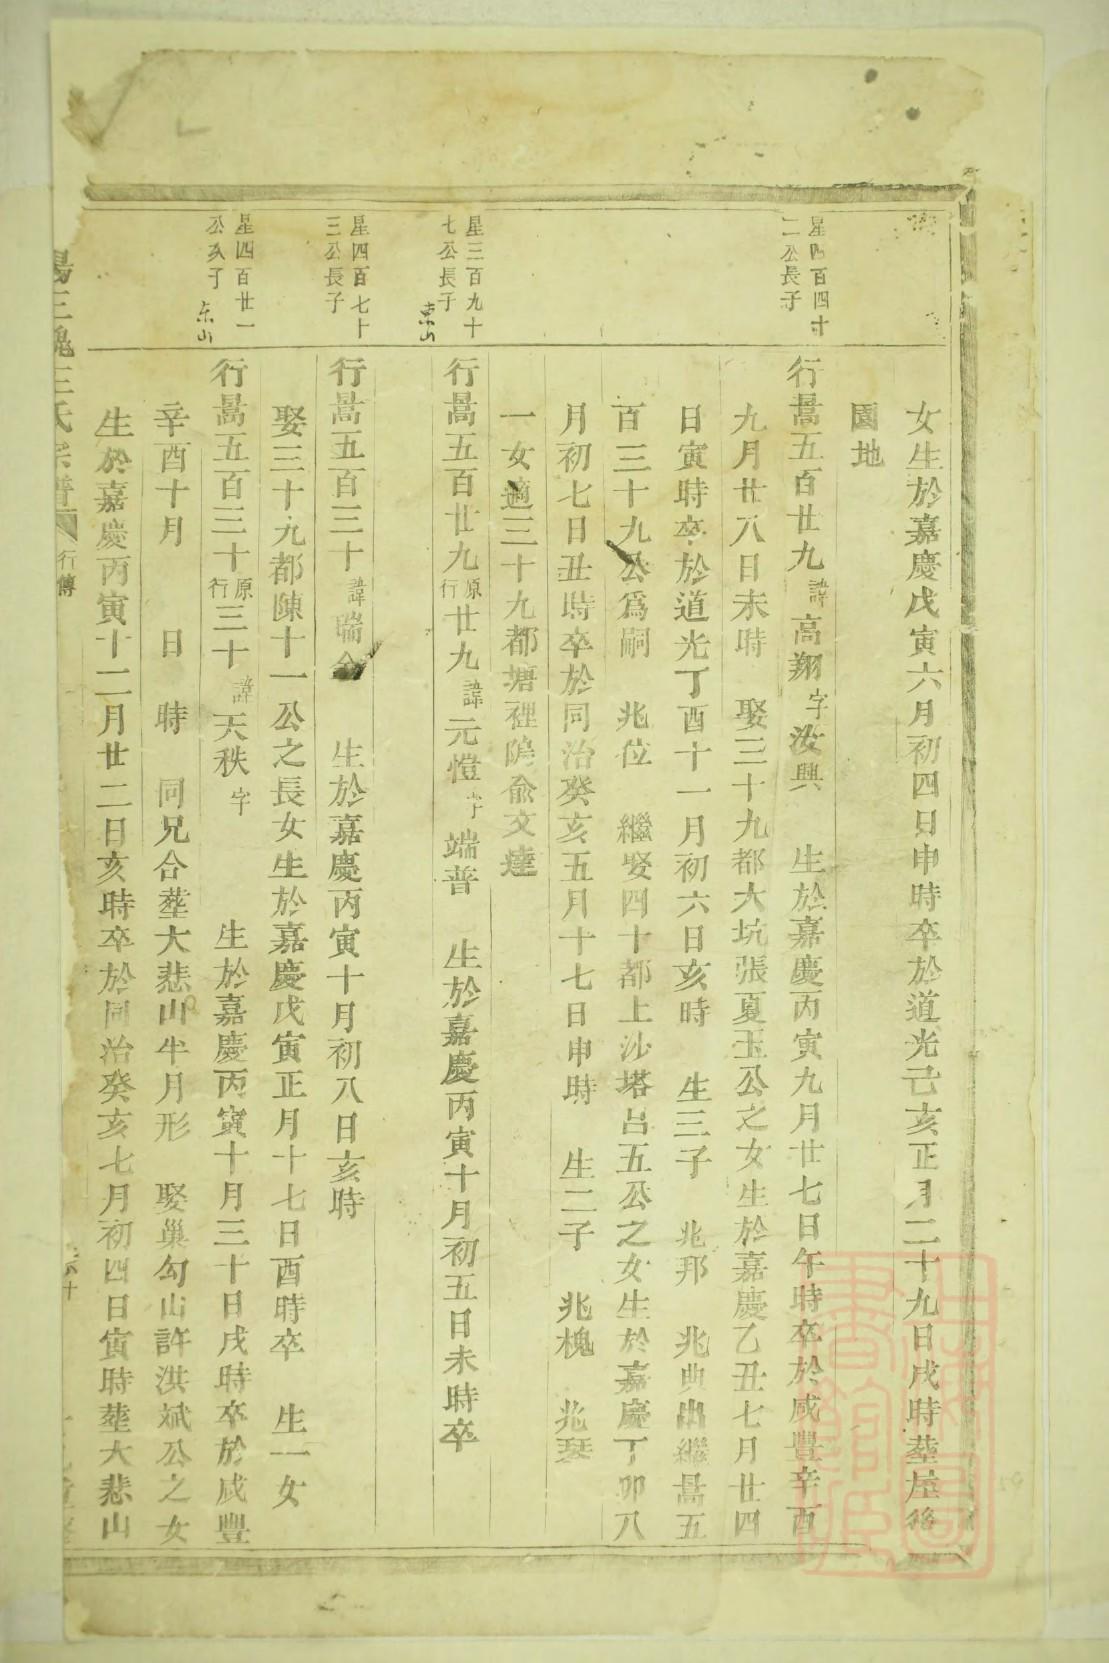 女生於嘉慶戊寅六月初四日申時卒於道光己亥正月二十九日戌時塟屋後
園地
星四百四十
二公長子
行暠五百廿九諱高翔字汝興 生於嘉慶丙寅九月廿七日午時卒於咸豐辛酉
九月廿八日未時 娶三十九都大坑張夏玉公之女生於嘉慶乙丑七月廿四
日寅時卒於道光丁酉十一月初六日亥時 生三子 兆邦 兆典出繼暠五
百三十九公爲嗣 兆位 繼娶四十都上沙塔呂五公之女生於嘉慶丁卯八
月初七日丑時卒於同治癸亥五月十七日申時 生二子 兆槐 兆琹
一女適三十九都塘裡塢俞文達
星三百九十
七公長子
東山
行暠五百廿九原行廿九諱元愷字端普 生於嘉慶丙寅十月初五日未時卒
星四百七十
三公長子
行暠五百三十諱瑞 生於嘉慶丙寅十月初八日亥時
娶三十九都陳十一公之長女生於嘉慶戊寅正月十七日酉時卒 生一女
星四百廿一
公次子
东山
行暠五百三十原行三十諱天秩字 生於嘉慶丙寅十月三十日戌時卒於咸豐
辛酉十月 日 時 同兄合塟大悲山半月形 娶巢勾山許洪斌公之女
生於嘉慶丙寅十二月廿二日亥時卒於同治癸亥七月初四日寅時塟大悲山
三槐王氏宗譜 行傳